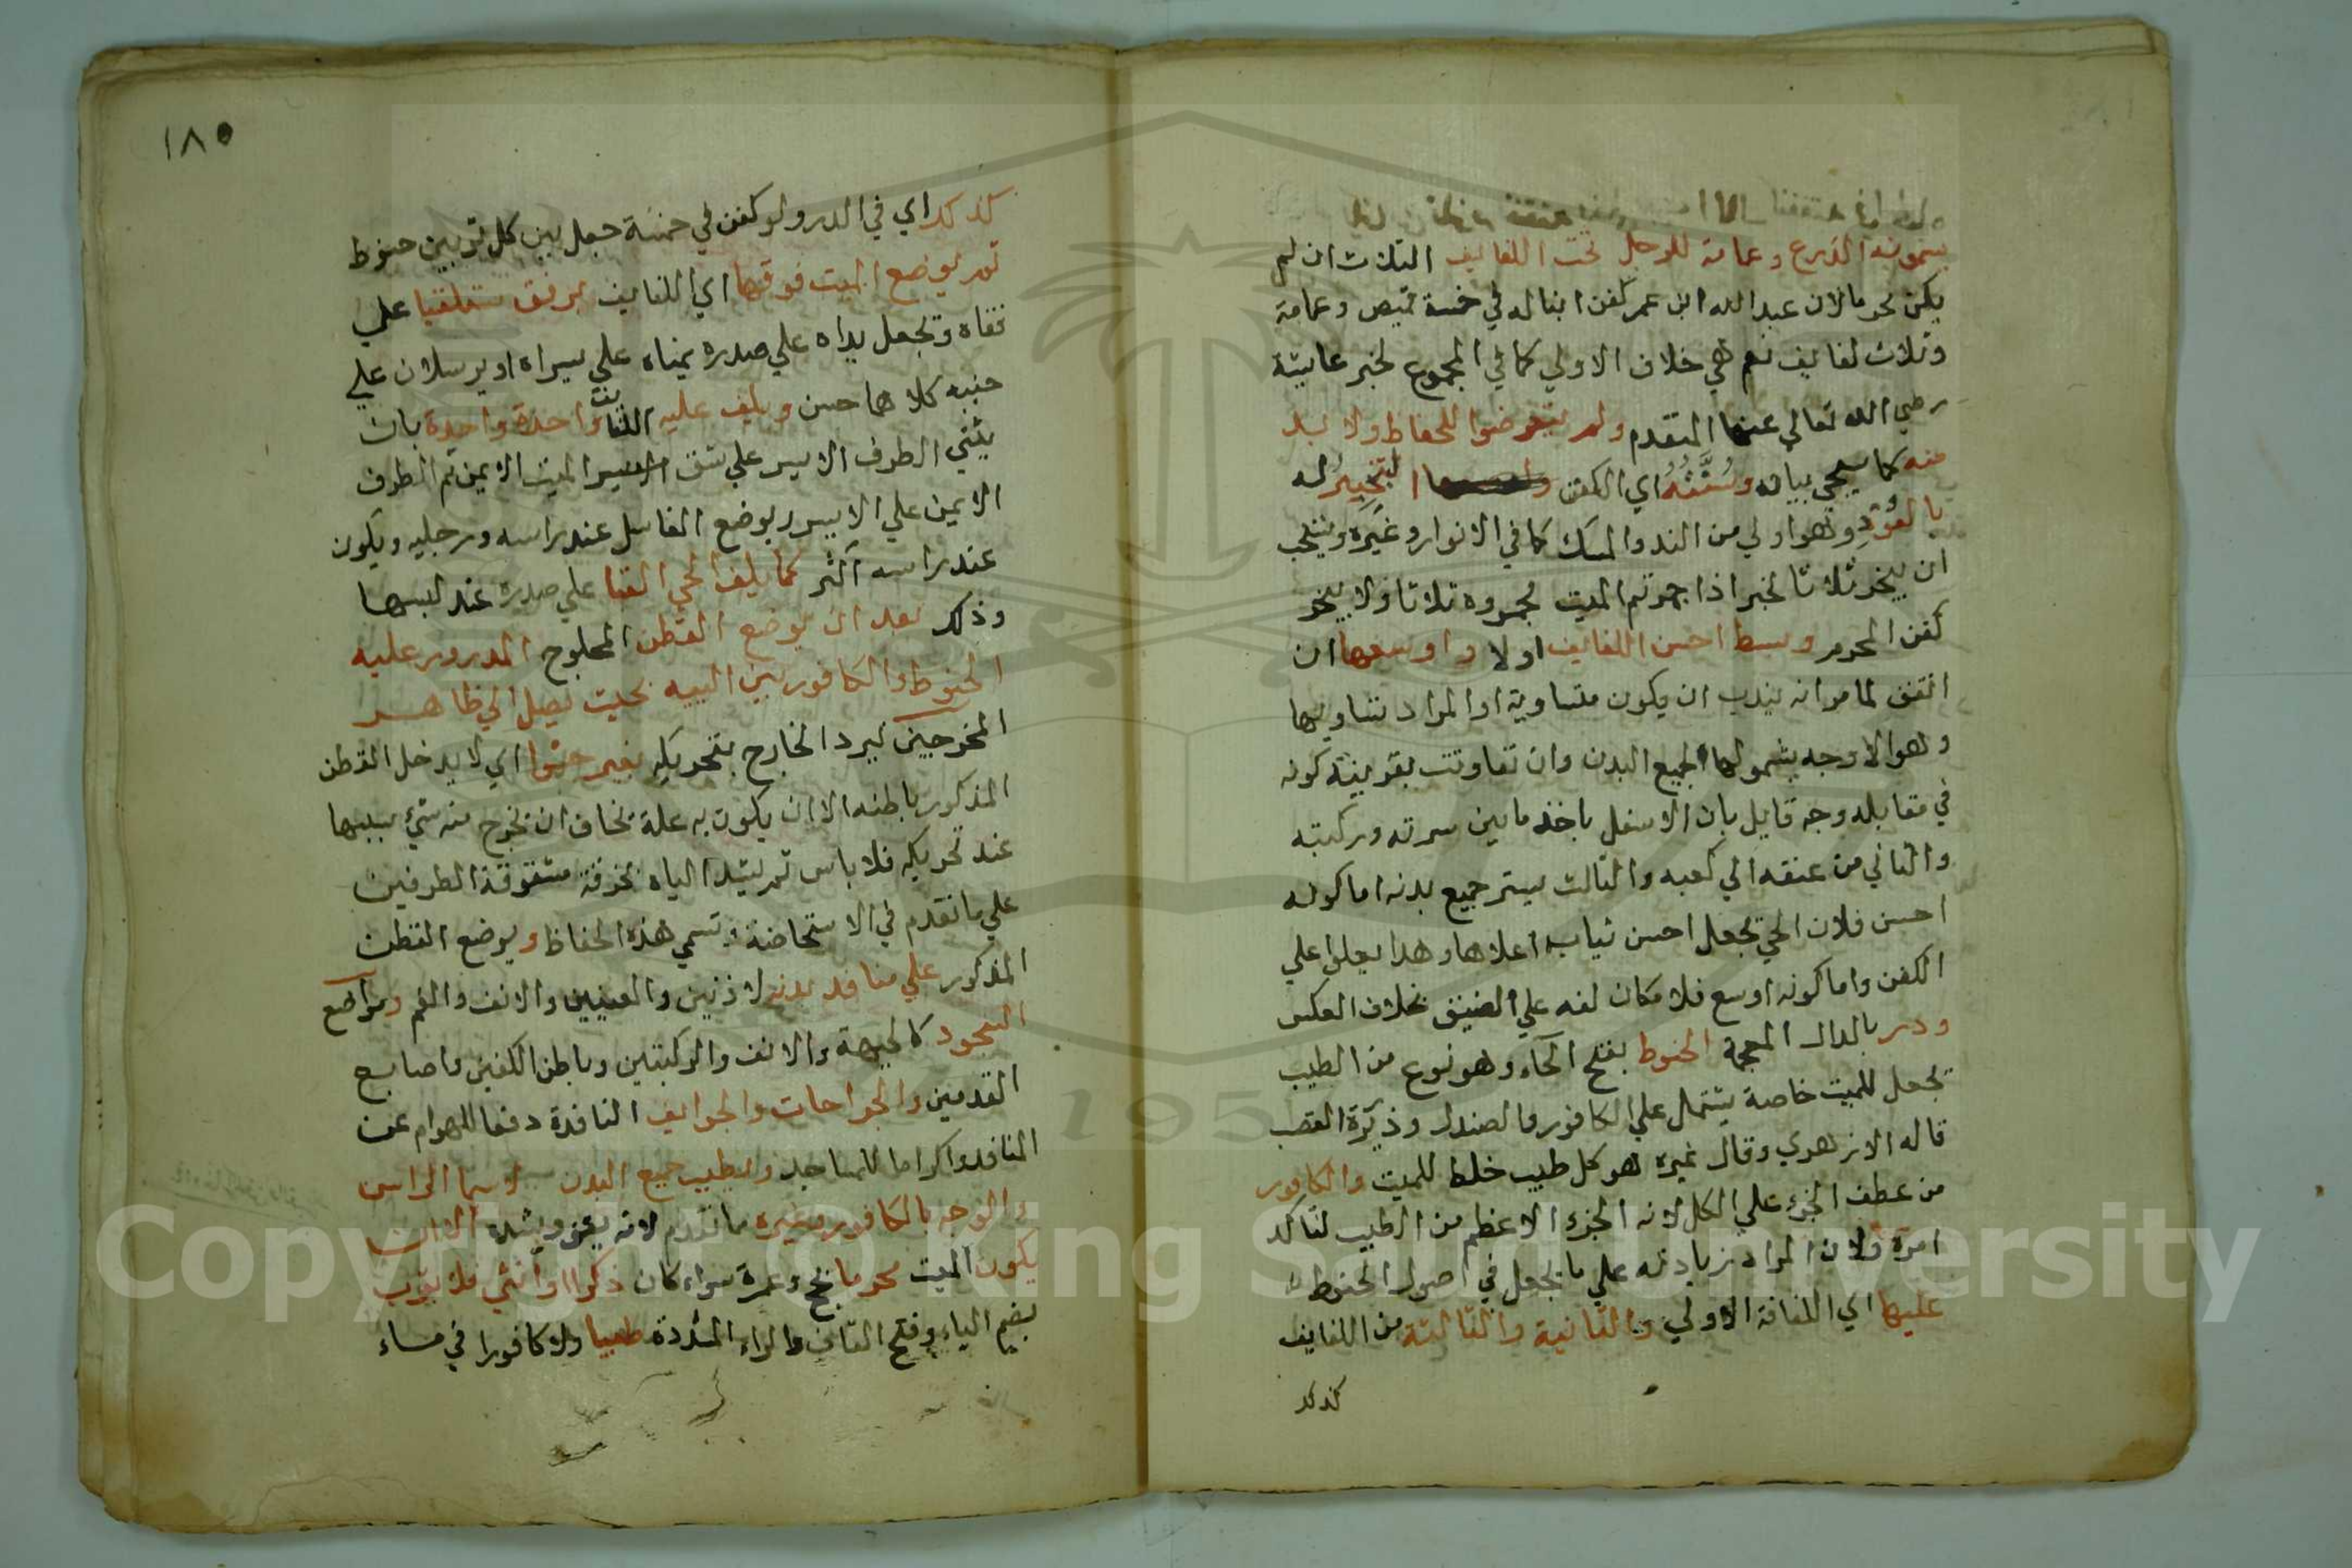 يسمونه الدرع وعمامة للرجل تحت اللفايف الثلاث ان لم
يكن محرما لان عبدالله ابن عمر كفن ابنا له في خمسة قميص وعمامة
وثلاث لفايف نعم هي خلاف الاولي كما في المجموع لخبر عايشة
رضي الله تعالي عنها المتقدم ولم يتعرضوا للحفاظ ولا بد
منه كما سيجي بيانه وسنته اي الكفن التبخير له
بالعود وهو اولي من الند والمسك كما في الانوار وغيره ويستحب
ان يبخر ثلاثا لخبر اذا جمرتم الميت فجمروه ثلاثا ولا يبخر
كفن المحرم وبسط احسن اللفايف اولا واوسعها ان
اتفق لما مر انه يندب ان يكون متساوية او المراد بتساويها
وهو الاوجه بشمولها لجميع البدن وان تفاوتت بقرينة كونه
في مقابله وجه قايل بان الاسفل ياخذ ما بين سرته وركبته
والثاني من عنقه الي كعبه والثالث يستر جميع بدنه اما كونه
احسن فلان الحي يجعل احسن ثيابه اعلاها وهذا يعلوا علي
الكفن واما كونه اوسع فلامكان لفه علي الضيق بخلاف العكس
ودر بالدال المعجمة الحنوط بفتح الحاء وهو نوع من الطيب
تجعل للميت خاصة يشتمل علي الكافور والصندل وذريرة القصب
قاله الازهري وقال غيره هو كل طيب خلط للميت والكافور
من عطف الجزء علي الكل لانه الجزء الاعظم من الطيب لتاكد
امره ولان المراد زيادته علي ما يجعل في اصول الحنوط
عليها اي اللفافة الاولي والثانية والثالثة من اللفايف
كذلك
١٨٥
كذلك اي في الدر ولو كفن في خمسة جعل بين كل ثوبين حنوط
ثم يوضع الميت فوقها اي اللفايف برفق مستلقيا علي
قفاه وتجعل يداه علي صدره يمناه علي يسراه او يرسلان علي
جنبه كلاهما حسن ويلف عليه الثياب واحدة واحدة بان
يثني الطرف الايسر علي شق الميت الايمن ثم الطرف
الايمن علي الايسر ويوضع الفاضل عند راسه ورجليه ويكون
عند راسه اكثر كما يلف الحي القبا علي صدره عند لبسها
وذلك بعد ان يوضع القطن المحلوج المدرور عليه
الحنوط والكافور بين اليیه بحيث يصل الي ظاهر
المخرجين ليرد الخارج بتحريكه بغير حشوا اي لا يدخل القطن
المذكور باطنه الا ان يكون به علة يخاف ان يخرج منه شيء بسببها
عند تحريكه فلا باس ثم يشد الياه بخرقة مشقوقة الطرفين
علي ما تقدم في الاستحاضة وتسمي هذه الحفاظ ويوضع القطن
المذكور علي منافذ بدنه لاذنين والعينين والانف والفم ومواضع
السجود كالجبهة والانف والركبتين وباطن الكفين واصابع
القدمين والجراحات والجوايف النافذة دفعا للهوام عن
المنافذ واكراما للمساجد ويطيب جميع البدن لا سيما الراس
والوجه بالكافور وغيره مما تقدم لانه يقوي ويشده الا ان
يكون الميت محرما بحج وعمرة سواء كان ذكرا او انثي فلا يقرب
بضم الياء وفتح القاف والراء المشددة طيبا ولا كافورا في مساء
Copyright © King Saud University
1957